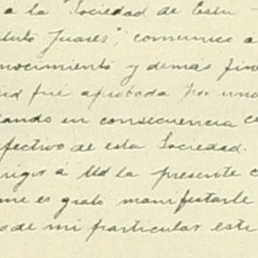 a la "Sociedad de Estu
tuto Juares", comunico a
nocimiento y demás fine
ud fué aprobada por una
ando en consecuencia
fectivo de esta Sociedad.
rigir á Ud la presente
me es grato manifestarle
o de mi particular esti